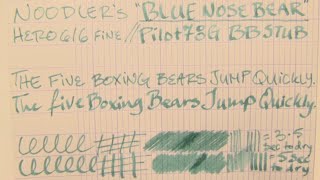 NOODLER'S "BLUE NOSE BEAR"
HERO 616 FINE // Pilot 78G BB STUB
THE FIVE BOXING BEARS JUMP QUICKLY.
The five Boxing Bears Jump Quickly.
3.5
sec to dry
5 sec
to dry